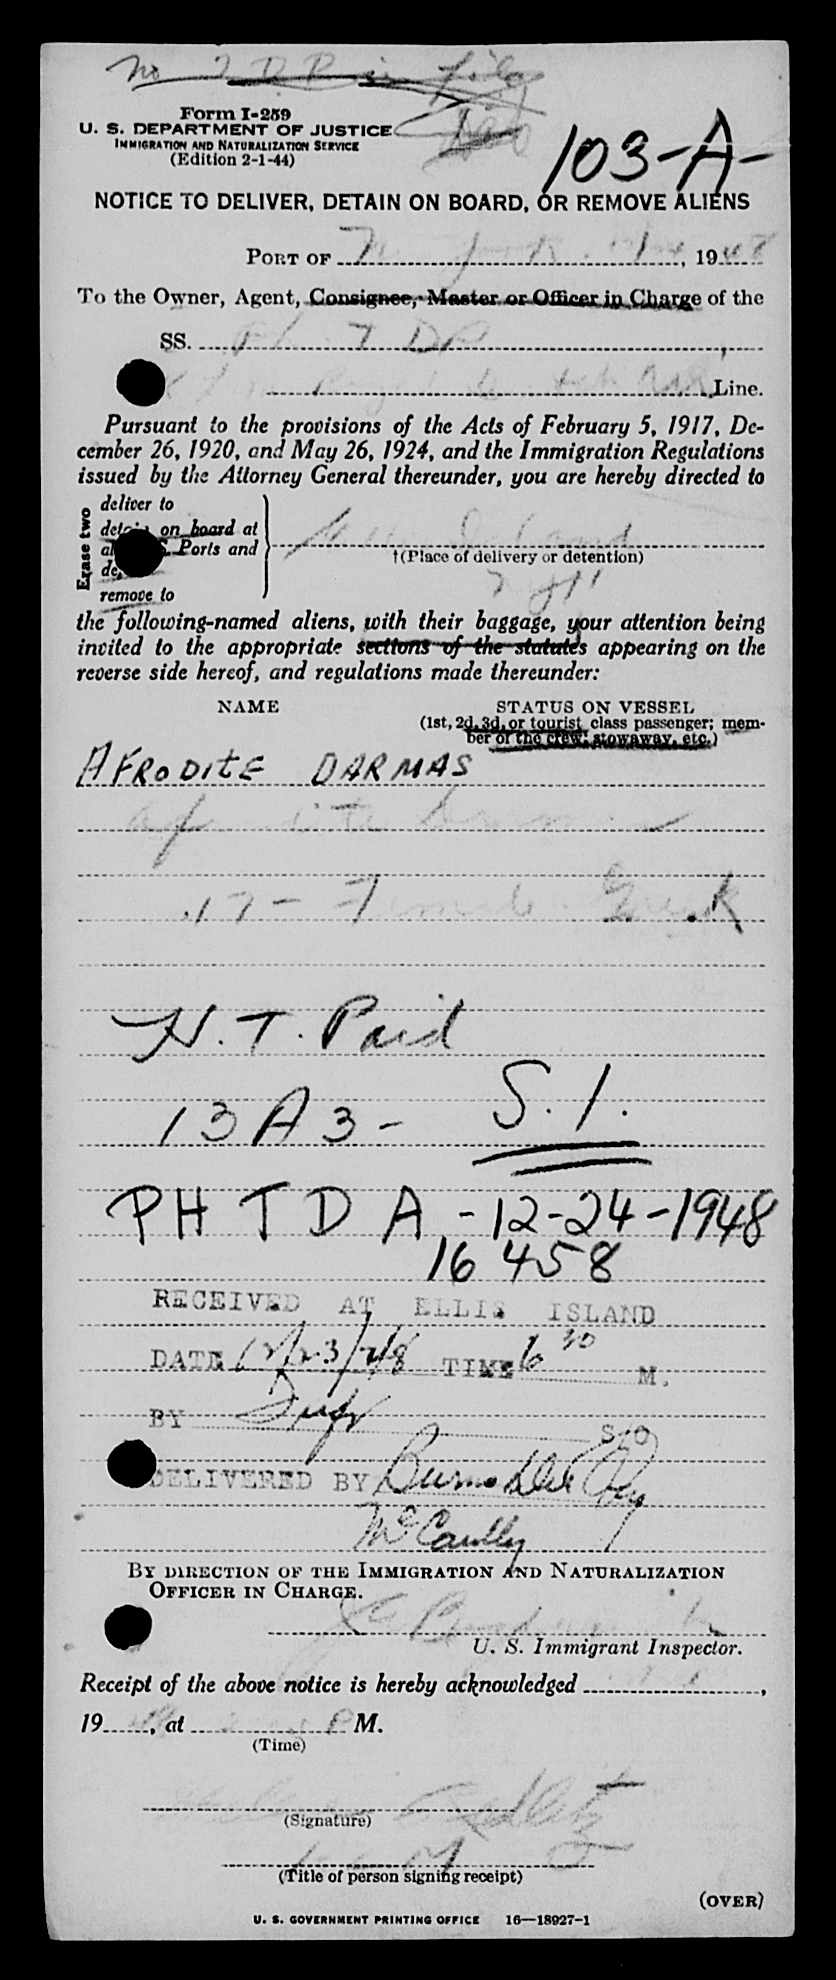 No
Form I-259
U. S. DEPARTMENT OF JUSTICE
IMMIGRATION AND NATURALIZATION SERVICE
(Edition 2-1-44)
103-A-
NOTICE TO DELIVER, DETAIN ON BOARD, OR REMOVE ALIENS
PORT OF New York, 1948
To the Owner, Agent, Consignee, Master or Officer in Charge of the
SS.
Line.
Pursuant to the provisions of the Acts of February 5, 1917, De-
cember 26, 1920, and May 26, 1924, and the Immigration Regulations
issued by the Attorney General thereunder, you are hereby directed to
Erase two
deliver to
on board at
Ports and
remove to
Island
†(Place of delivery or detention)
the following-named aliens, with their baggage, your attention being
invited to the appropriate sections of the statutes appearing on the
reverse side hereof, and regulations made thereunder:
NAME STATUS ON VESSEL
(1st, 2d, 3d, or tourist class passenger; mem-
ber of the crew; stowaway, etc.)
AFRODITE DARMAS
Afrodite Darmas
17 - Female Greek
H.T. Paid
13A3- S.I.
PHTDA-12-24-1948
16458
RECEIVED AT ELLIS ISLAND
DATE 12/23/48 TIME 6 30 M.
BY S/O
DELIVERED BY Burns
McCaulley
BY DIRECTION OF THE IMMIGRATION AND NATURALIZATION
OFFICER IN CHARGE.
U. S. Immigrant Inspector.
Receipt of the above notice is hereby acknowledged ,
19 , at P M.
(Time)
(Signature)
(Title of person signing receipt)
(OVER)
U. S. GOVERNMENT PRINTING OFFICE 16—18927-1